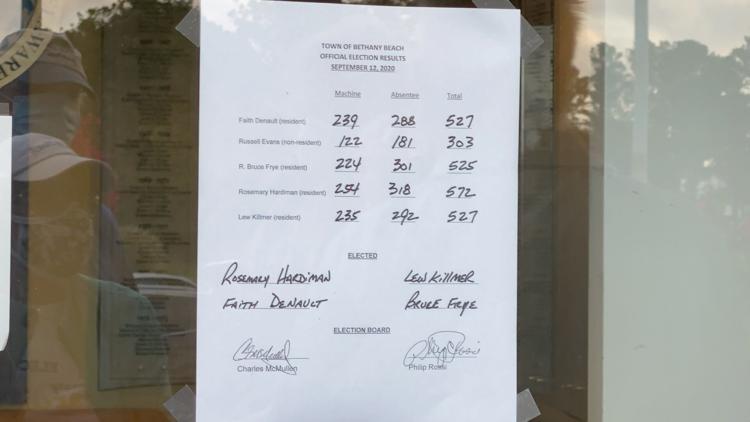 TOWN OF BETHANY BEACH
OFFICIAL ELECTION RESULTS
SEPTEMBER 12, 2020
Machine Absentee Total
Faith Denault (resident) 239 288 527
Russell Evans (non-resident) 122 181 303
R. Bruce Frye (resident) 224 301 525
Rosemary Hardiman (resident) 254 318 572
Lew Killmer (resident) 235 292 527
ELECTED
ROSEMARY HARDIMAN LEW KILLMER
FAITH DENAULT BRUCE FRYE
ELECTION BOARD
Charles McMullen Philip Rossi